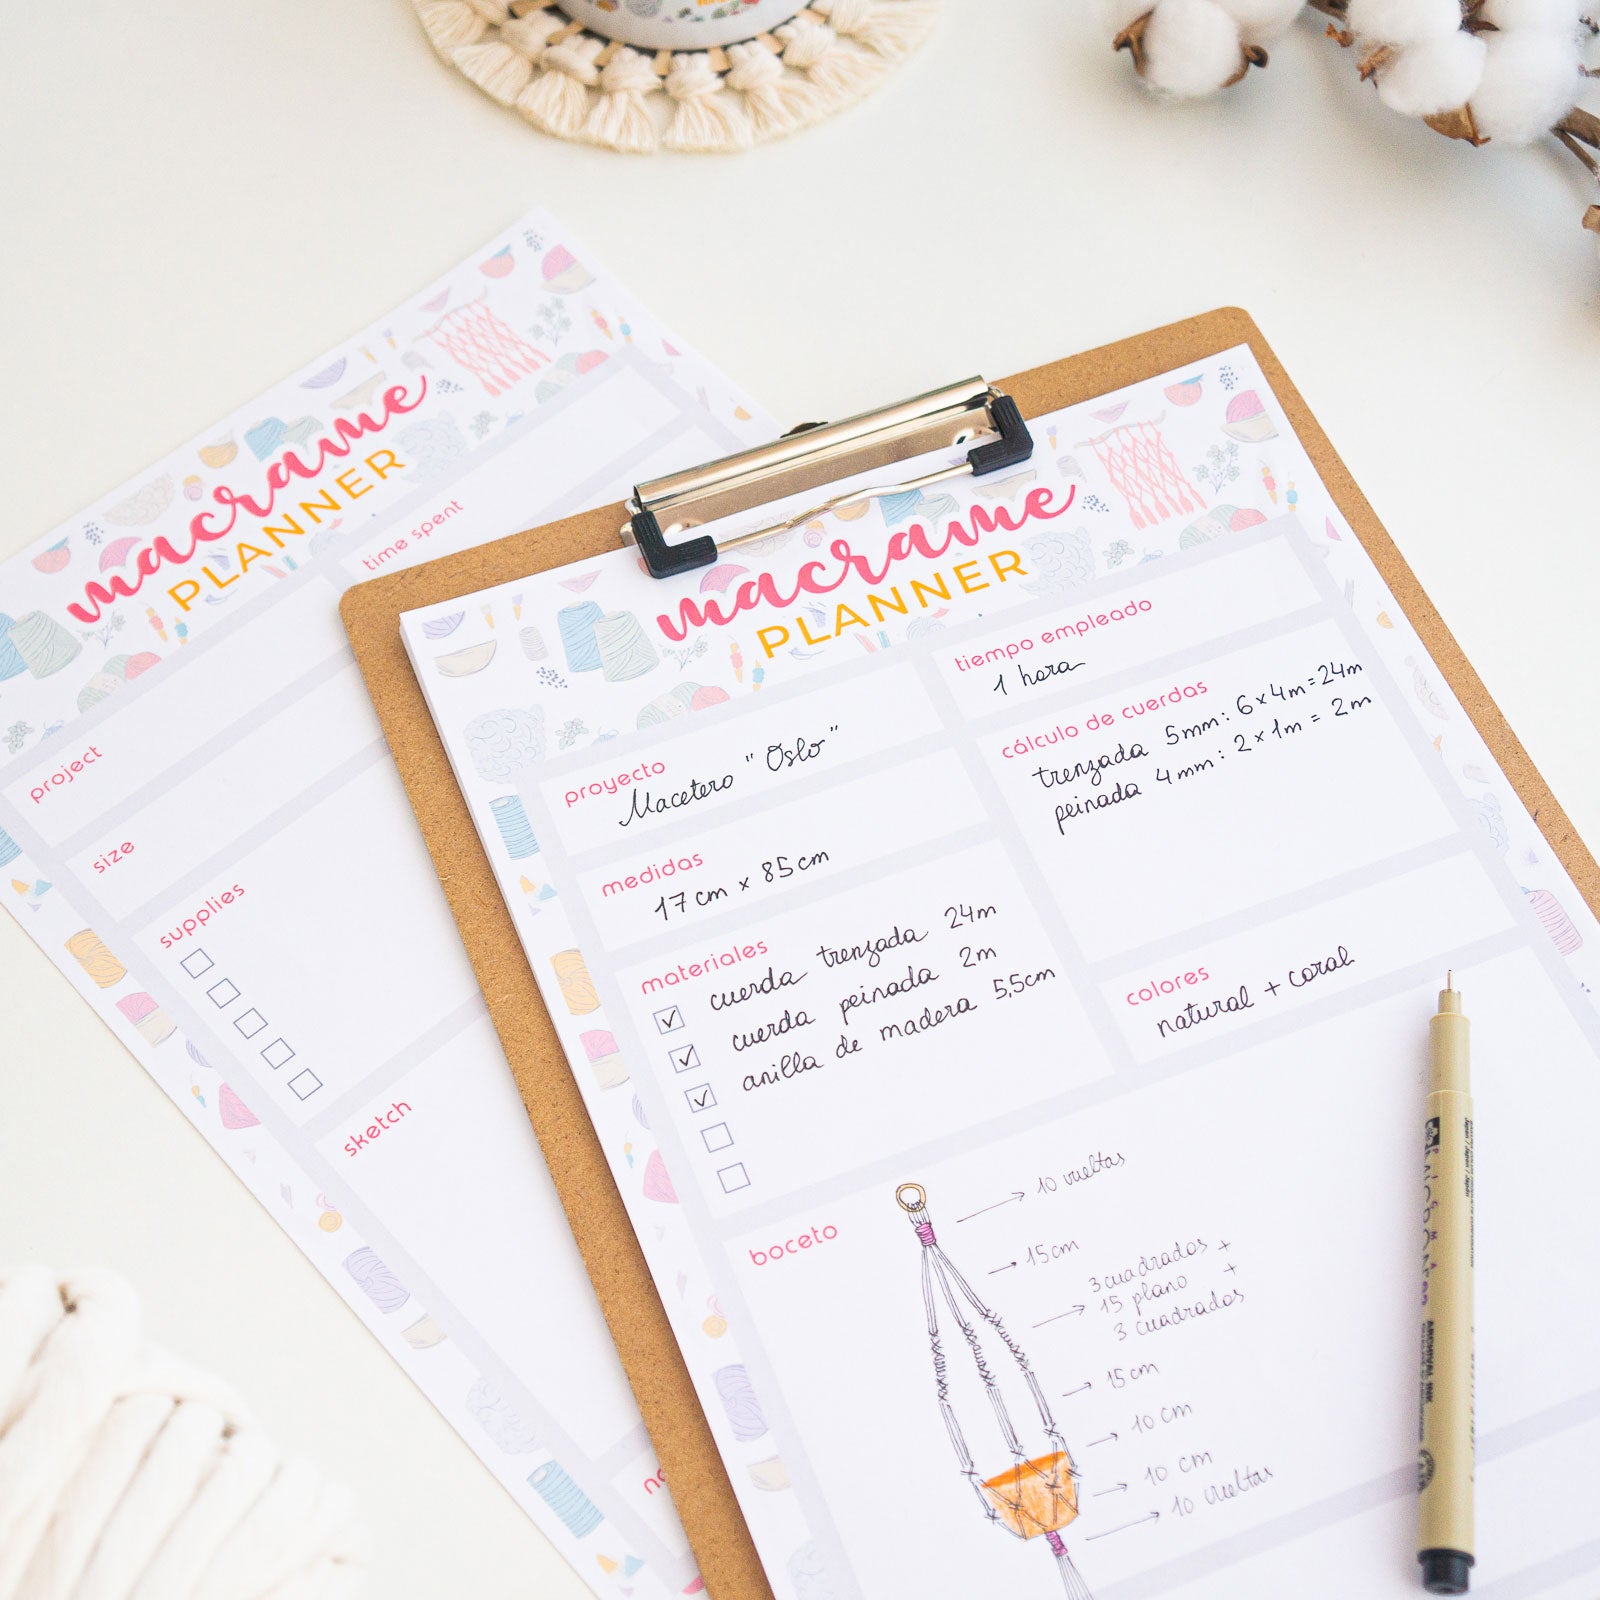 macrame
PLANNER
time spent
project
size
supplies
sketch
macrame
PLANNER
proyecto
Macetero "Oslo"
tiempo empleado
1 hora
medidas
17 cm x 85 cm
cálculo de cuerdas
trenzada 5mm: 6 x 4m = 24m
peinada 4mm: 2 x 1m = 2m
materiales
cuerda trenzada 24m
cuerda peinada 2m
anilla de madera 5,5cm
colores
natural + coral
boceto
10 vueltas
15 cm
3 cuadrados +
15 plano +
3 cuadrados
15 cm
10 cm
10 cm
10 vueltas
ARCHIVAL INK